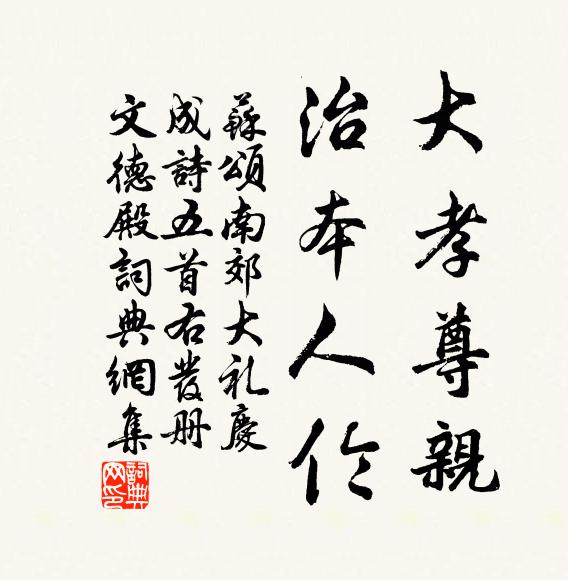 大孝尊親
治本人伦
蘇頌南郊大礼慶
成詩五首右發册
文德殿詞典網集
詞典網印